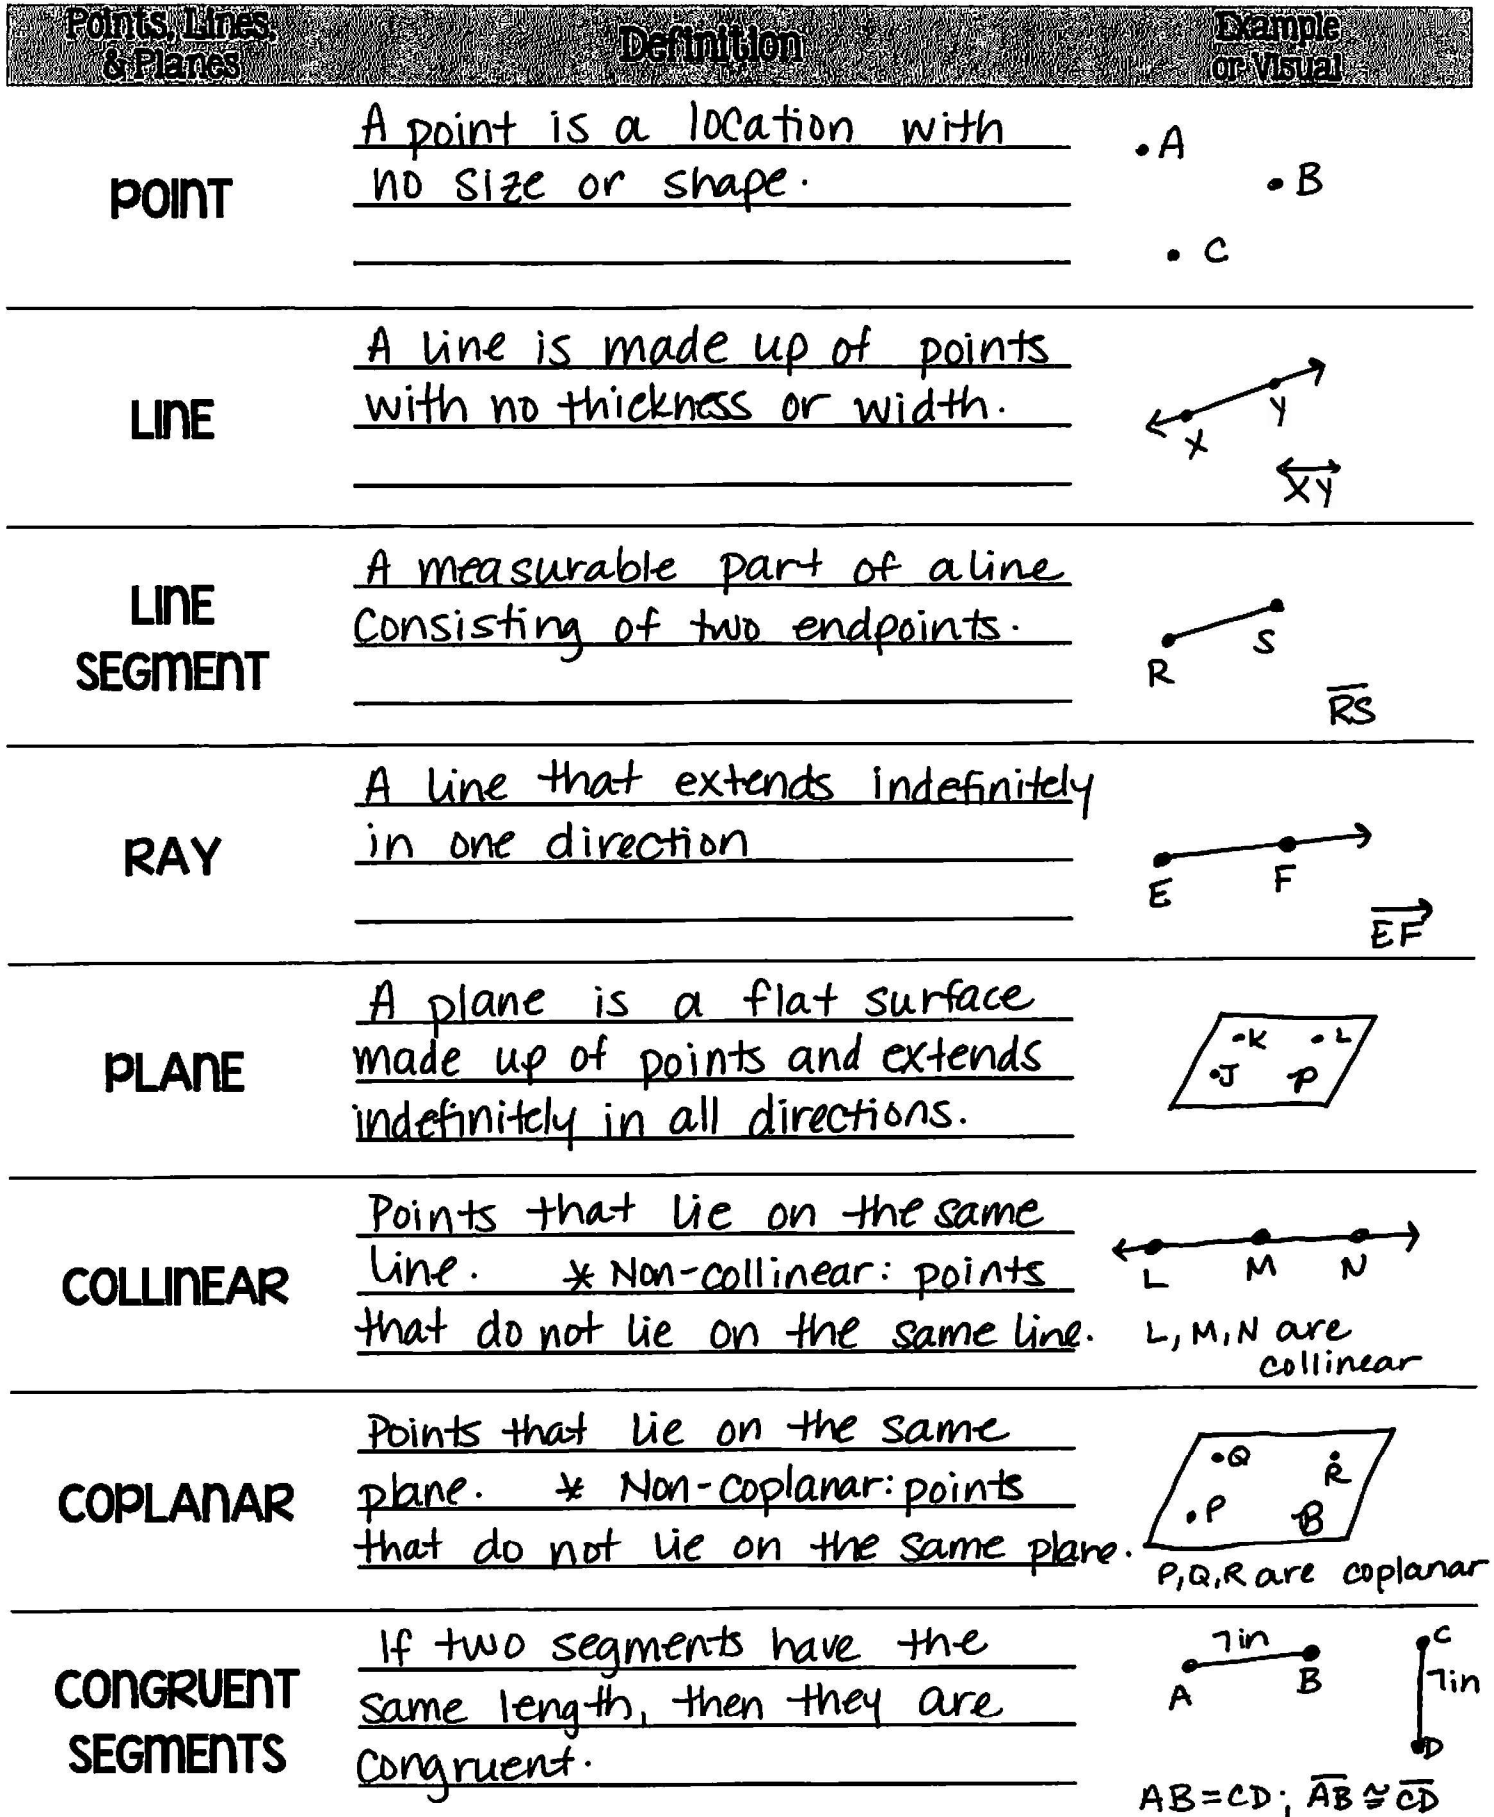 Points, Lines, & Planes
Definition
Example or Visual
POINT
A point is a location with
no size or shape.
• A
• B
• C
LINE
A line is made up of points
with no thickness or width.
X
Y
XY
LINE
SEGMENT
A measurable part of a line
consisting of two endpoints.
R
S
RS
RAY
A line that extends indefinitely
in one direction
E
F
EF
PLANE
A plane is a flat surface
made up of points and extends
indefinitely in all directions.
•K •L
•J P
COLLINEAR
Points that lie on the same
line. * Non-collinear: points
that do not lie on the same line.
L M N
L, M, N are
collinear
COPLANAR
Points that lie on the same
plane. * Non-coplanar: points
that do not lie on the same plane.
•Q R
•P B
P, Q, R are coplanar
CONGRUENT
SEGMENTS
If two segments have the
same length, then they are
congruent.
7in
A B
C
7in
D
AB = CD; A̅B̅ ≅ C̅D̅